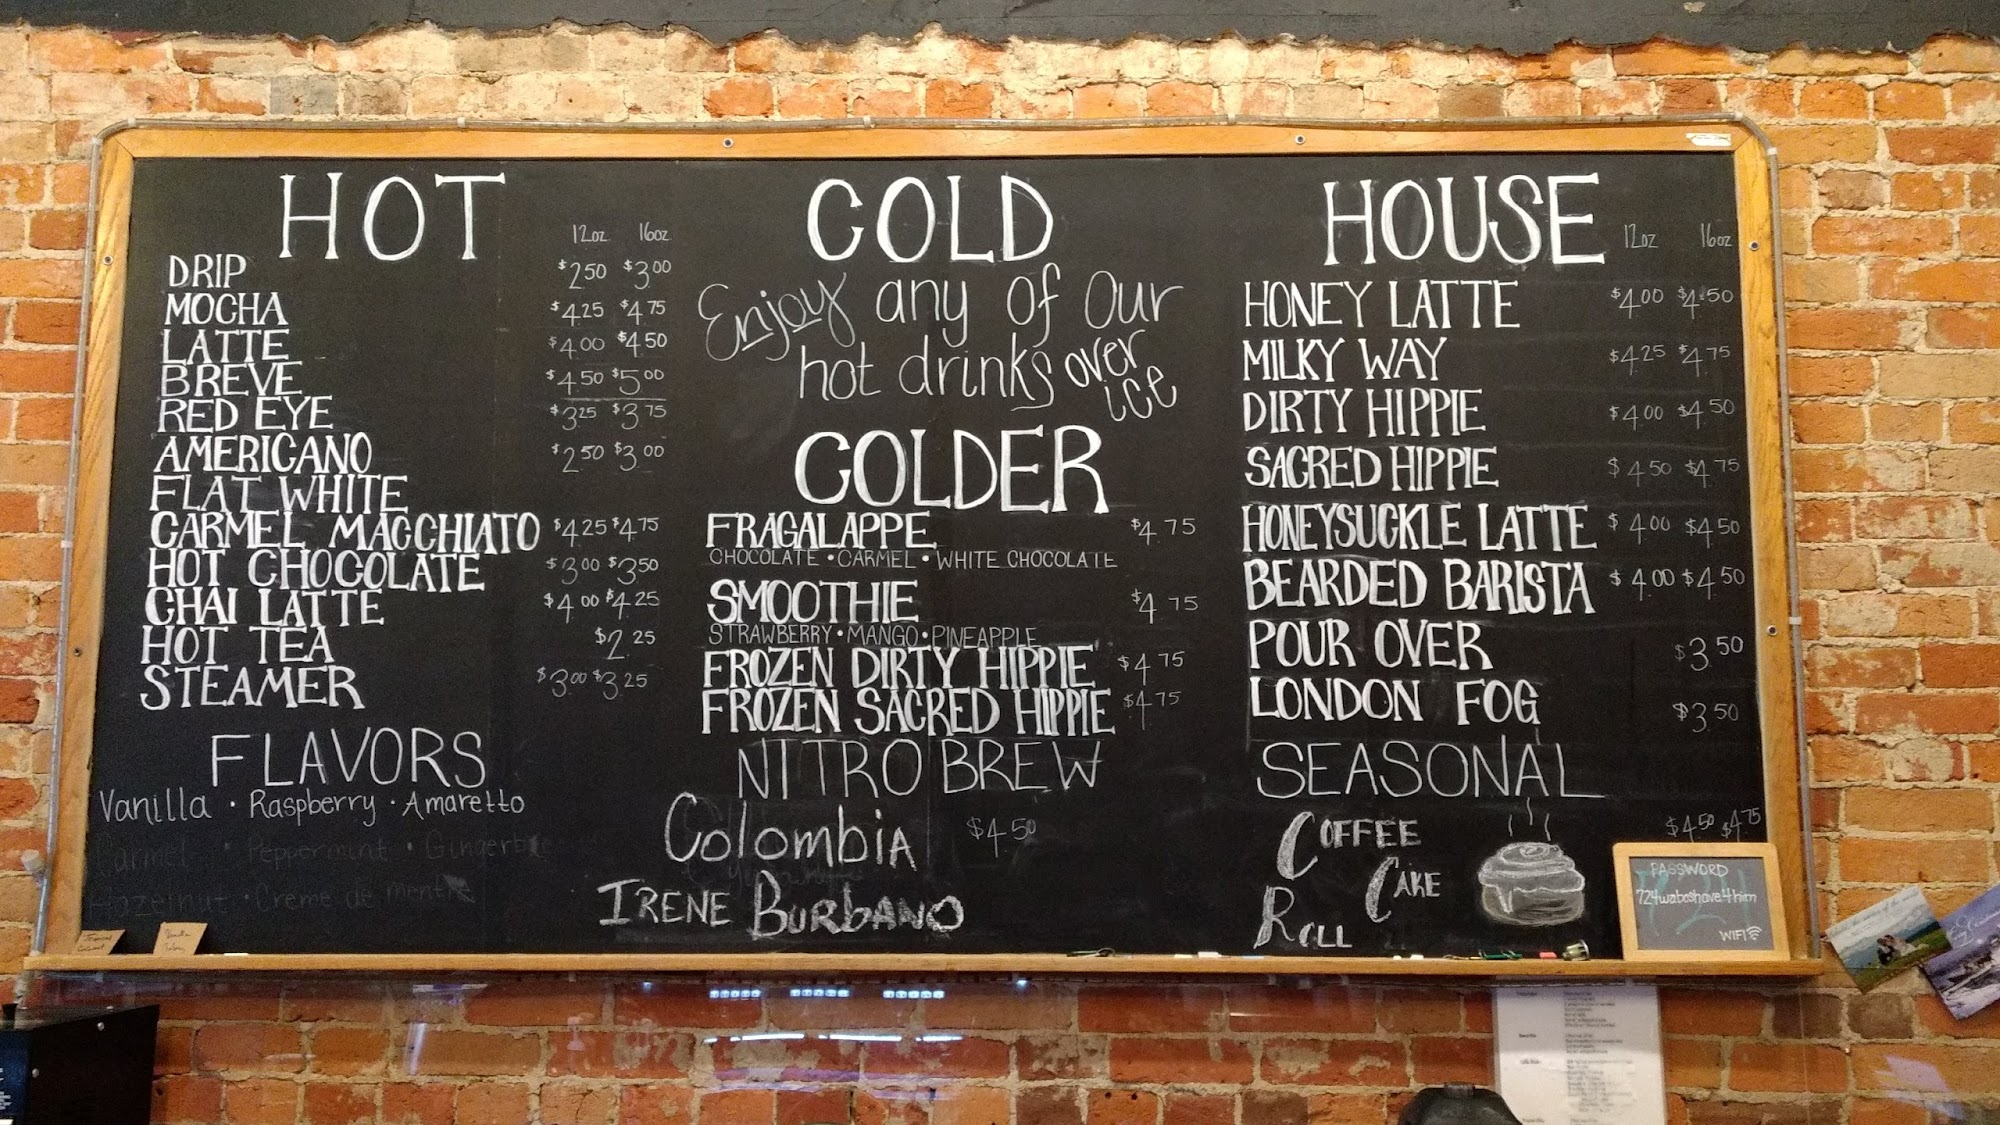 HOT
12oz 16oz
DRIP $2.50 $3.00
MOCHA $4.25 $4.75
LATTE $4.00 $4.50
BREVE $4.50 $5.00
RED EYE $3.25 $3.75
AMERICANO $2.50 $3.00
FLAT WHITE
CARMEL MACCHIATO $4.25 $4.75
HOT CHOCOLATE $3.00 $3.50
CHAI LATTE $4.00 $4.25
HOT TEA $2.25
STEAMER $3.00 $3.25
FLAVORS
Vanilla • Raspberry • Amaretto
Carmel • Peppermint •
Hazelnut • Creme de menthe
COLD
Enjoy any of Our
hot drinks over
ice
COLDER
FRAGALAPPE $4.75
CHOCOLATE • CARMEL • WHITE CHOCOLATE
SMOOTHIE $4.75
STRAWBERRY • MANGO • PINEAPPLE
FROZEN DIRTY HIPPIE $4.75
FROZEN SACRED HIPPIE $4.75
NITRO BREW
Colombia $4.50
IRENE BURBANO
HOUSE
12oz 16oz
HONEY LATTE $4.00 $4.50
MILKY WAY $4.25 $4.75
DIRTY HIPPIE $4.00 $4.50
SACRED HIPPIE $4.50 $4.75
HONEYSUCKLE LATTE $4.00 $4.50
BEARDED BARISTA $4.00 $4.50
POUR OVER $3.50
LONDON FOG $3.50
SEASONAL
COFFEE $4.50 $4.75
CAKE
ROLL
PASSWORD
724wabashave4him
WIFI